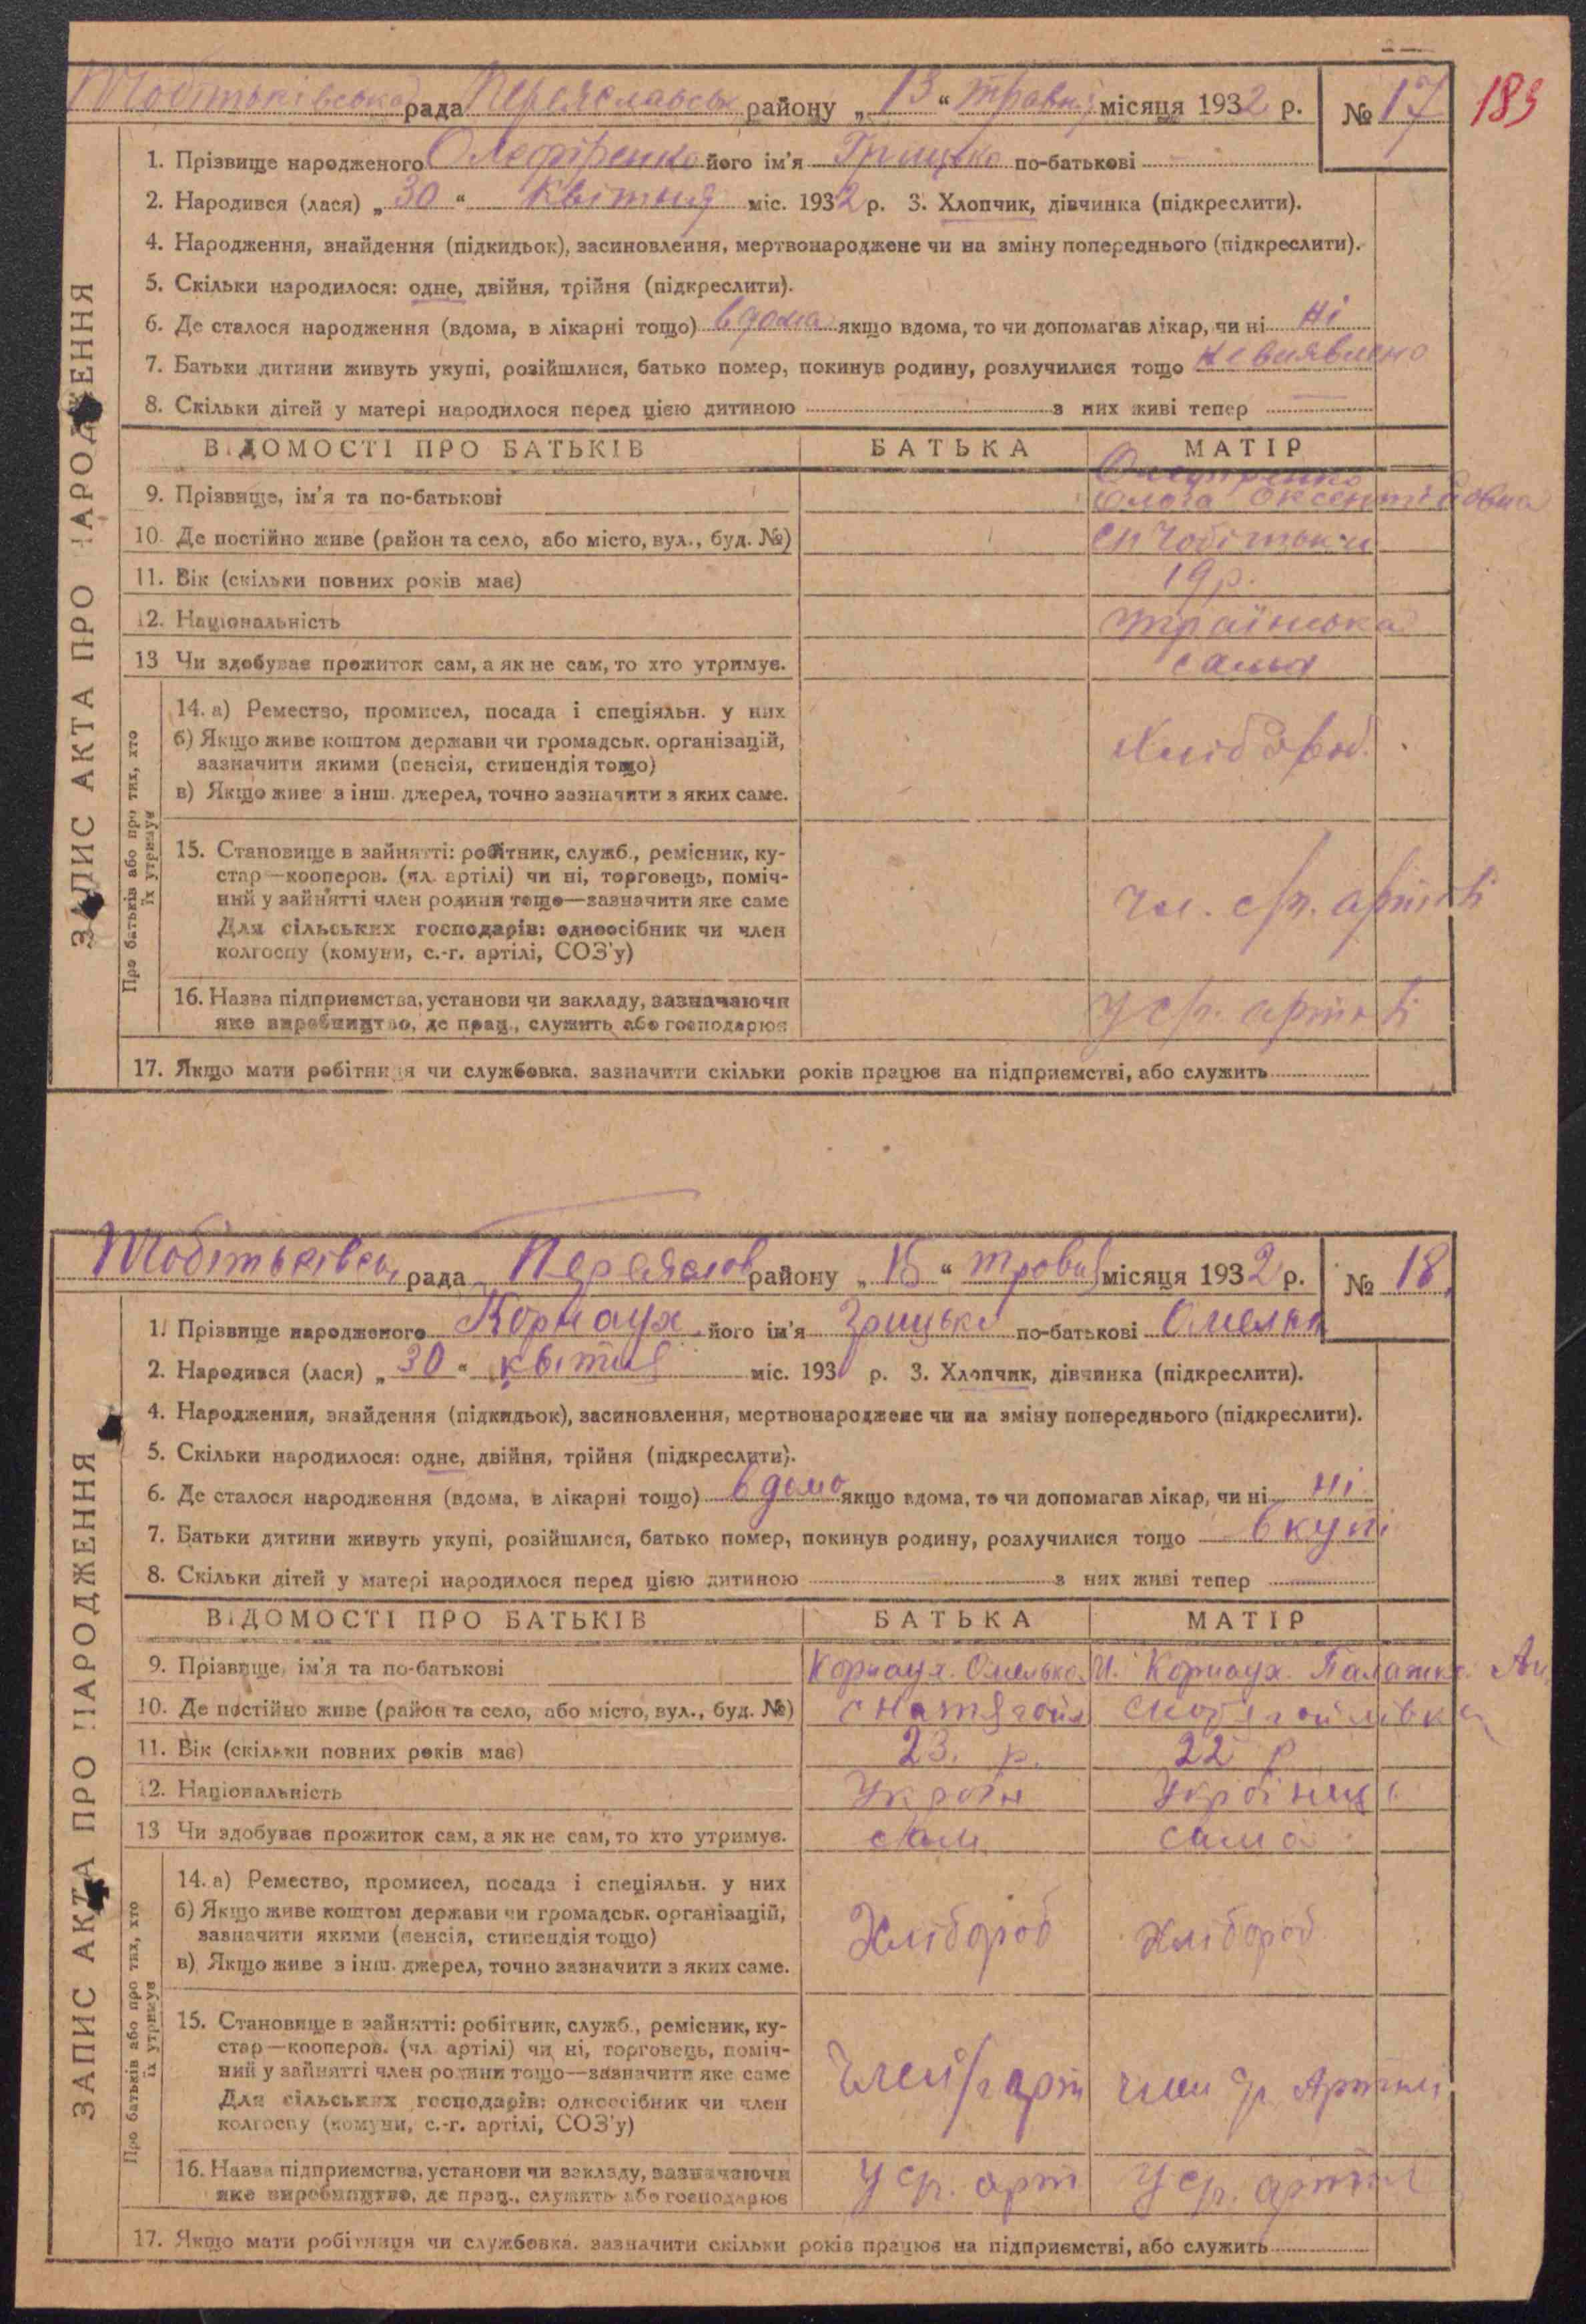 рада Переяславськ району „ 13 “ травня місяця 1932 р. № 17 183
1. Прізвище народженого Олефіренко його ім'я Грицько по-батькові —
2. Народився (лася) „ 30 “ квітня міс. 1932 р. 3. Хлопчик, дівчинка (підкреслити).
4. Народження, знайдення (підкидьок), засиновлення, мертвонароджене чи на зміну попереднього (підкреслити).
5. Скільки народилося: одне, двійня, трійня (підкреслити).
6. Де сталося народження (вдома, в лікарні тощо) вдома якщо вдома, то чи допомагав лікар, чи ні ні
7. Батьки дитини живуть укупі, розійшлися, батько помер, покинув родину, розлучилися тощо не виявлено
8. Скільки дітей у матері народилося перед цією дитиною з них живі тепер
ВІДОМОСТІ ПРО БАТЬКІВ БАТЬКА МАТІР
Олефіренко
9. Прізвище, ім'я та по-батькові Оксентіївна
10. Де постійно живе (район та село, або місто, вул., буд. №) Чобітьки
11. Вік (скільки повних років має) 19 р.
12. Національність українська
13 Чи здобуває прожиток сам, а як не сам, то хто утримує. сама
14. а) Ремество, промисел, посада і спеціяльн. у них
б) Якщо живе коштом держави чи громадськ. організацій,
зазначити якими (пенсія, стипендія тощо) Хлібороб.
в) Якщо живе з інш. джерел, точно зазначити з яких саме.
15. Становище в зайнятті: робітник, служб., ремісник, ку-
стар—кооперов. (чл. артілі) чи ні, торговець, поміч-
ний у зайнятті член родини тощо—зазначити яке саме чл. с/г. артілі
Для сільських господарів: одноосібник чи член
колгоспу (комуни, с.-г. артілі, СОЗ'у)
16. Назва підприємства, установи чи закладу, зазначаючи
яке виробництво, де прац., служить або господарює у с/г. артілі
17. Якщо мати робітниця чи службовка. зазначити скільки років працює на підприємстві, або служить
ЗАПИС АКТА ПРО НАРОДЖЕННЯ
Про батьків або про тих, хто
їх утримує
рада Переяслов району „ 15 “ тровня місяця 1932 р. № 18
1. Прізвище народженого Корнаух його ім'я Грицько по-батькові Омельк
2. Народився (лася) „ 30 “ квітня міс. 193 р. 3. Хлопчик, дівчинка (підкреслити).
4. Народження, знайдення (підкидьок), засиновлення, мертвонароджене чи на зміну попереднього (підкреслити).
5. Скільки народилося: одне, двійня, трійня (підкреслити).
6. Де сталося народження (вдома, в лікарні тощо) вдома якщо вдома, то чи допомагав лікар, чи ні ні
7. Батьки дитини живуть укупі, розійшлися, батько помер, покинув родину, розлучилися тощо вкупі
8. Скільки дітей у матері народилося перед цією дитиною з них живі тепер
ВІДОМОСТІ ПРО БАТЬКІВ БАТЬКА МАТІР
9. Прізвище, ім'я та по-батькові Корнаух. Омелько И. Корнаух. Палажка Ан
10. Де постійно живе (район та село, або місто, вул., буд. №)
11. Вік (скільки повних років має) 23. р. 22 р
12. Національність Україн Українця
13 Чи здобуває прожиток сам, а як не сам, то хто утримує. сам сама
14. а) Ремество, промисел, посада і спеціяльн. у них
б) Якщо живе коштом держави чи громадськ. організацій,
зазначити якими (пенсія, стипендія тощо) Хлібороб Хлібороб
в) Якщо живе з інш. джерел, точно зазначити з яких саме.
15. Становище в зайнятті: робітник, служб., ремісник, ку-
стар—кооперов. (чл. артілі) чи ні, торговець, поміч-
ний у зайнятті член родини тощо—зазначити яке саме член с/г арт член с/г. Артілі
Для сільських господарів: одноосібник чи член
колгоспу (комуни, с.-г. артілі, СОЗ'у)
16. Назва підприємства, установи чи закладу, зазначаючи
яке виробництво, де прац., служить або господарює У с/г. арт У с/г. артіл
17. Якщо мати робітниця чи службовка. зазначити скільки років працює на підприємстві, або служить
ЗАПИС АКТА ПРО НАРОДЖЕННЯ
Про батьків або про тих, хто
їх утримує